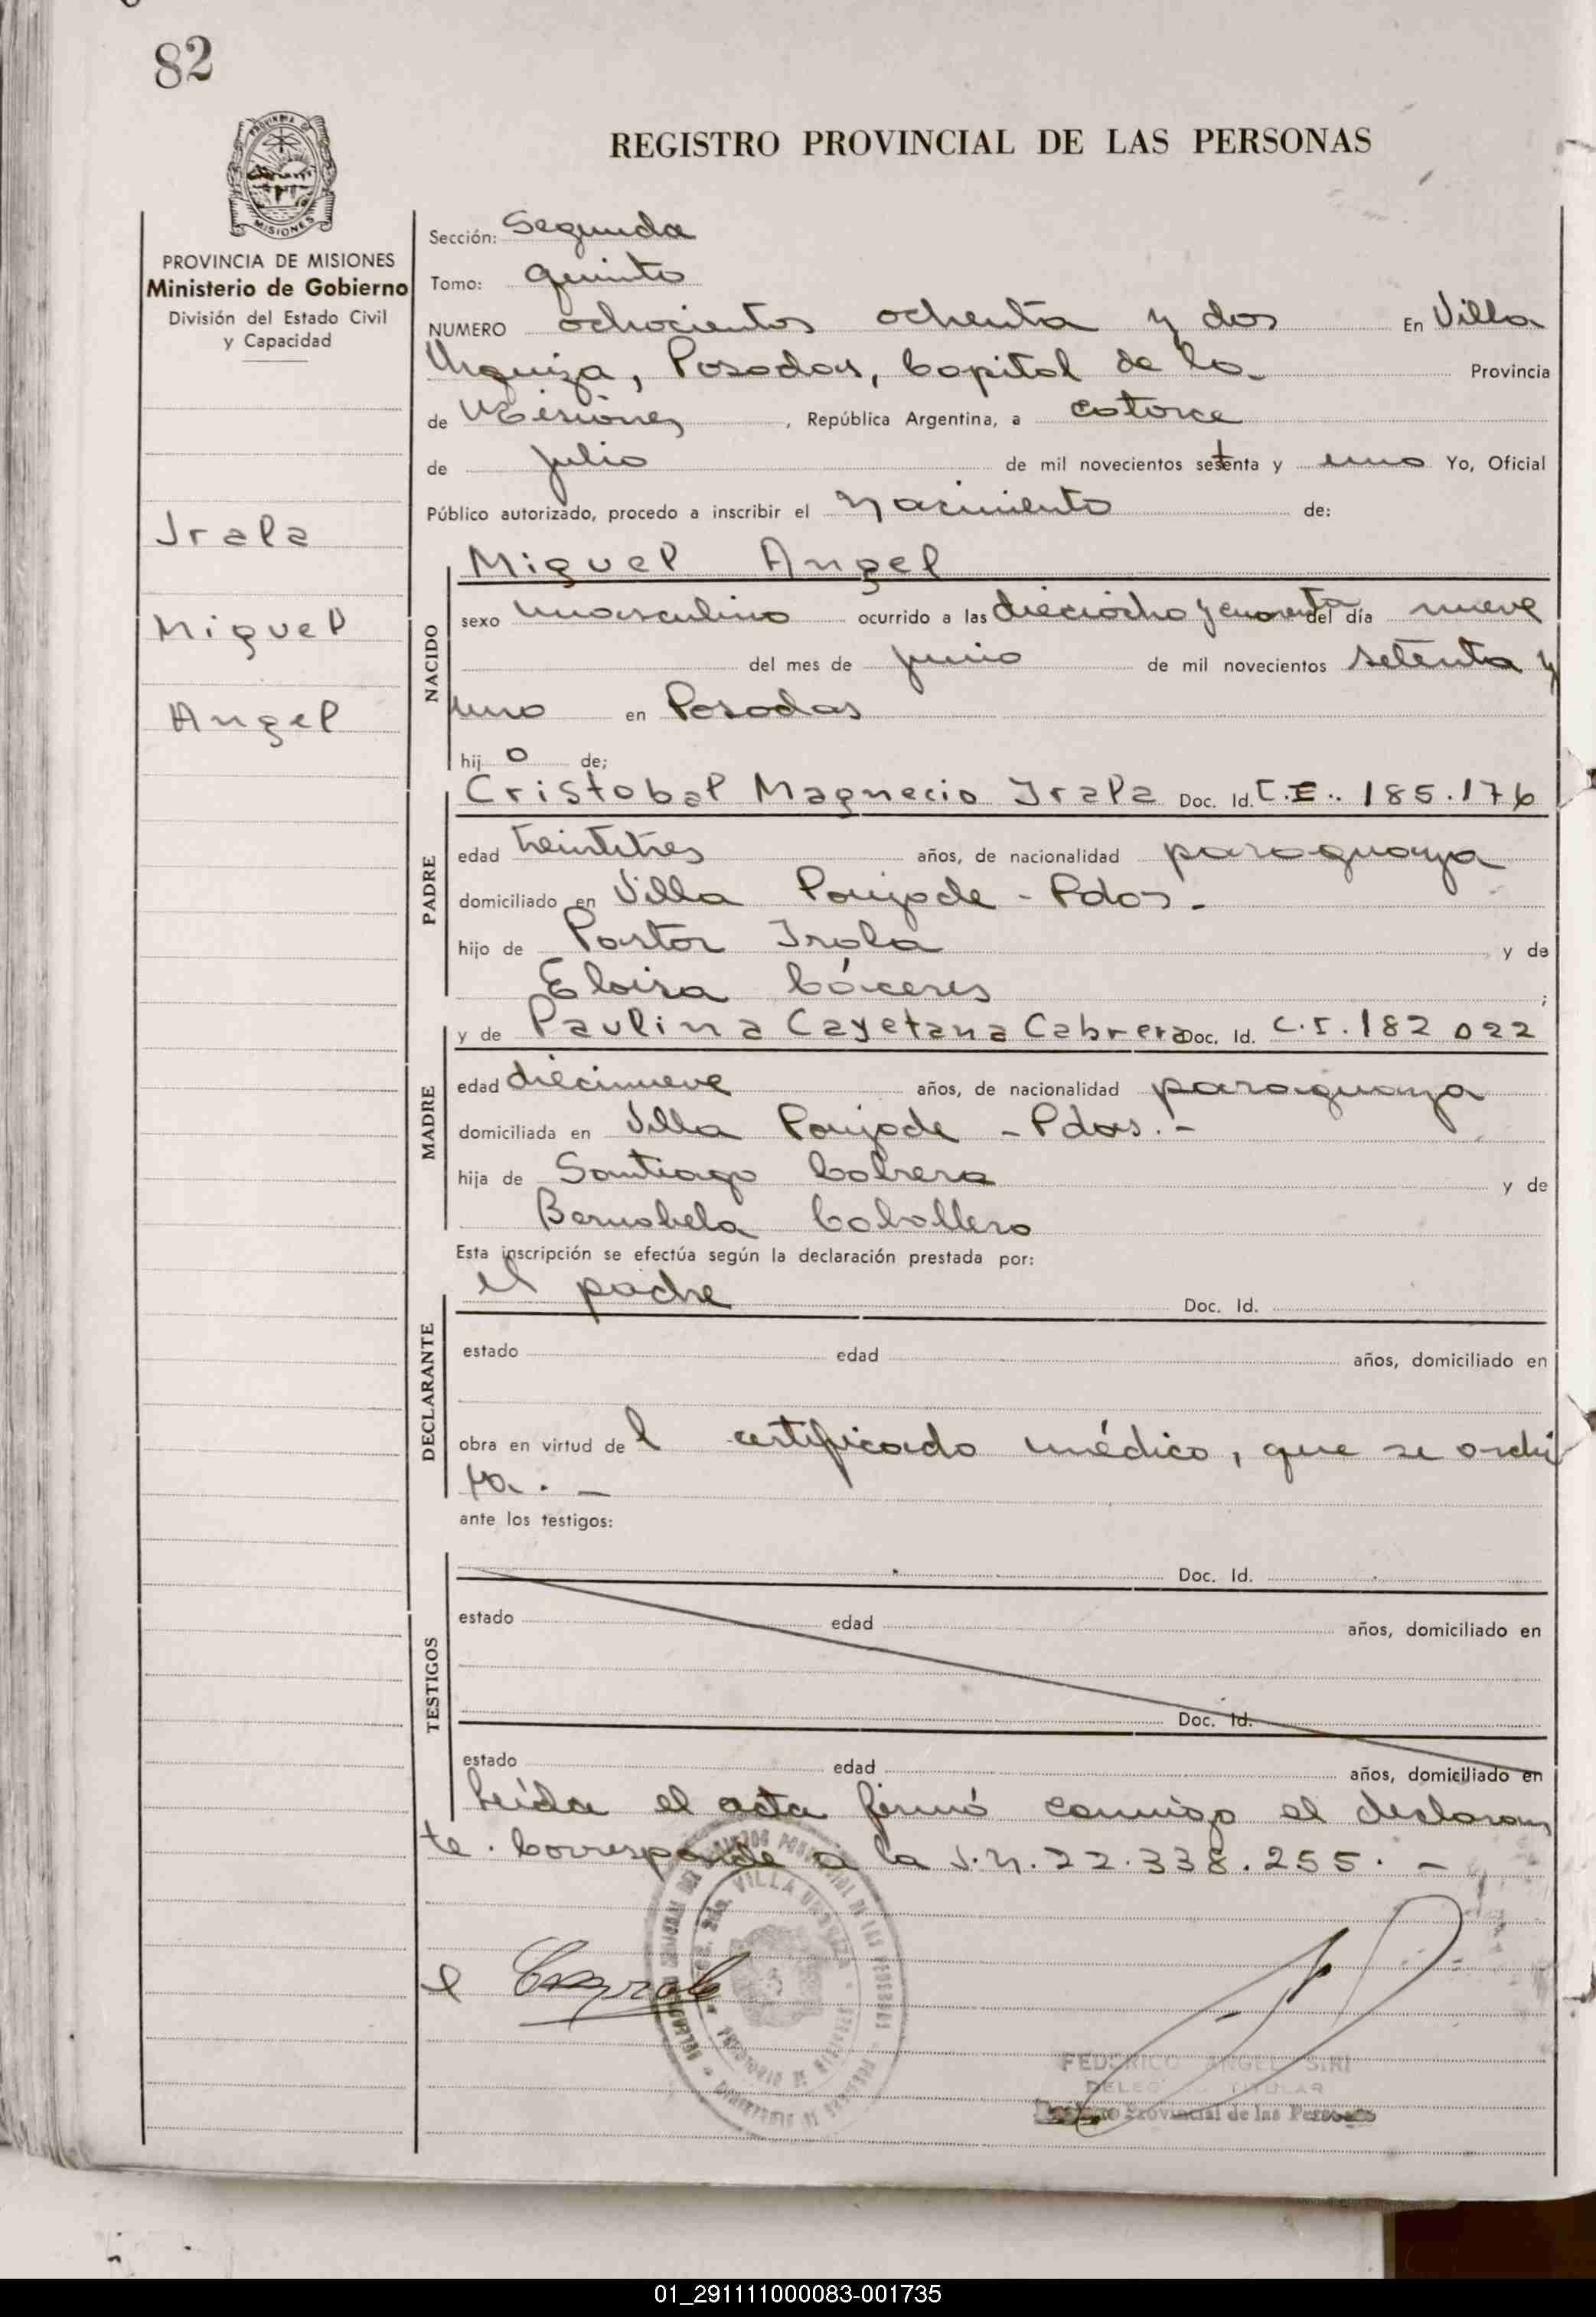 82
PROVINCIA DE MISIONES
REGISTRO PROVINCIAL DE LAS PERSONAS
PROVINCIA DE MISIONES
Ministerio de Gobierno
División del Estado Civil
y Capacidad
Irala
Miguel
Angel
Sección: Segunda
Tomo: quinto
NUMERO ochocientos ochenta y dos En Villa
Urquiza, Posadas, Capital de la Provincia
de Misiones, República Argentina, a catorce
de julio de mil novecientos setenta y uno Yo, Oficial
Público autorizado, procedo a inscribir el nacimiento de:
Miguel Angel
NACIDO
sexo masculino ocurrido a las dieciocho y cuarenta del día nueve
del mes de junio de mil novecientos setenta y
uno en Posadas
hijo de;
Cristobal Magnecio Irala Doc. Id. C.I. 185.176
PADRE
edad treintitres años, de nacionalidad paraguaya
domiciliado en Villa Poujade - Pdas.
hijo de Pastor Irala y de
Eloisa Cáceres ;
y de Paulina Cayetana Cabrera Doc. Id. C.I. 182 022
MADRE
edad diecinueve años, de nacionalidad paraguaya
domiciliada en Villa Poujade - Pdas. -
hija de Santiago Cabrera y de
Bernabela Caballero
Esta inscripción se efectúa según la declaración prestada por:
el padre Doc. Id.
DECLARANTE
estado edad años, domiciliado en
obra en virtud del certificado médico, que se archi
va. -
ante los testigos:
Doc. Id.
TESTIGOS
estado edad años, domiciliado en
Doc. Id.
estado edad años, domiciliado en
Leída el acta firmó conmigo el declaran
te. Corresponde a la S.N. 22.338.255. -
VILLA URQUIZA
FEDERICO ANGEL SIRI
TITULAR
Provincial de las Personas
01_291111000083-001735